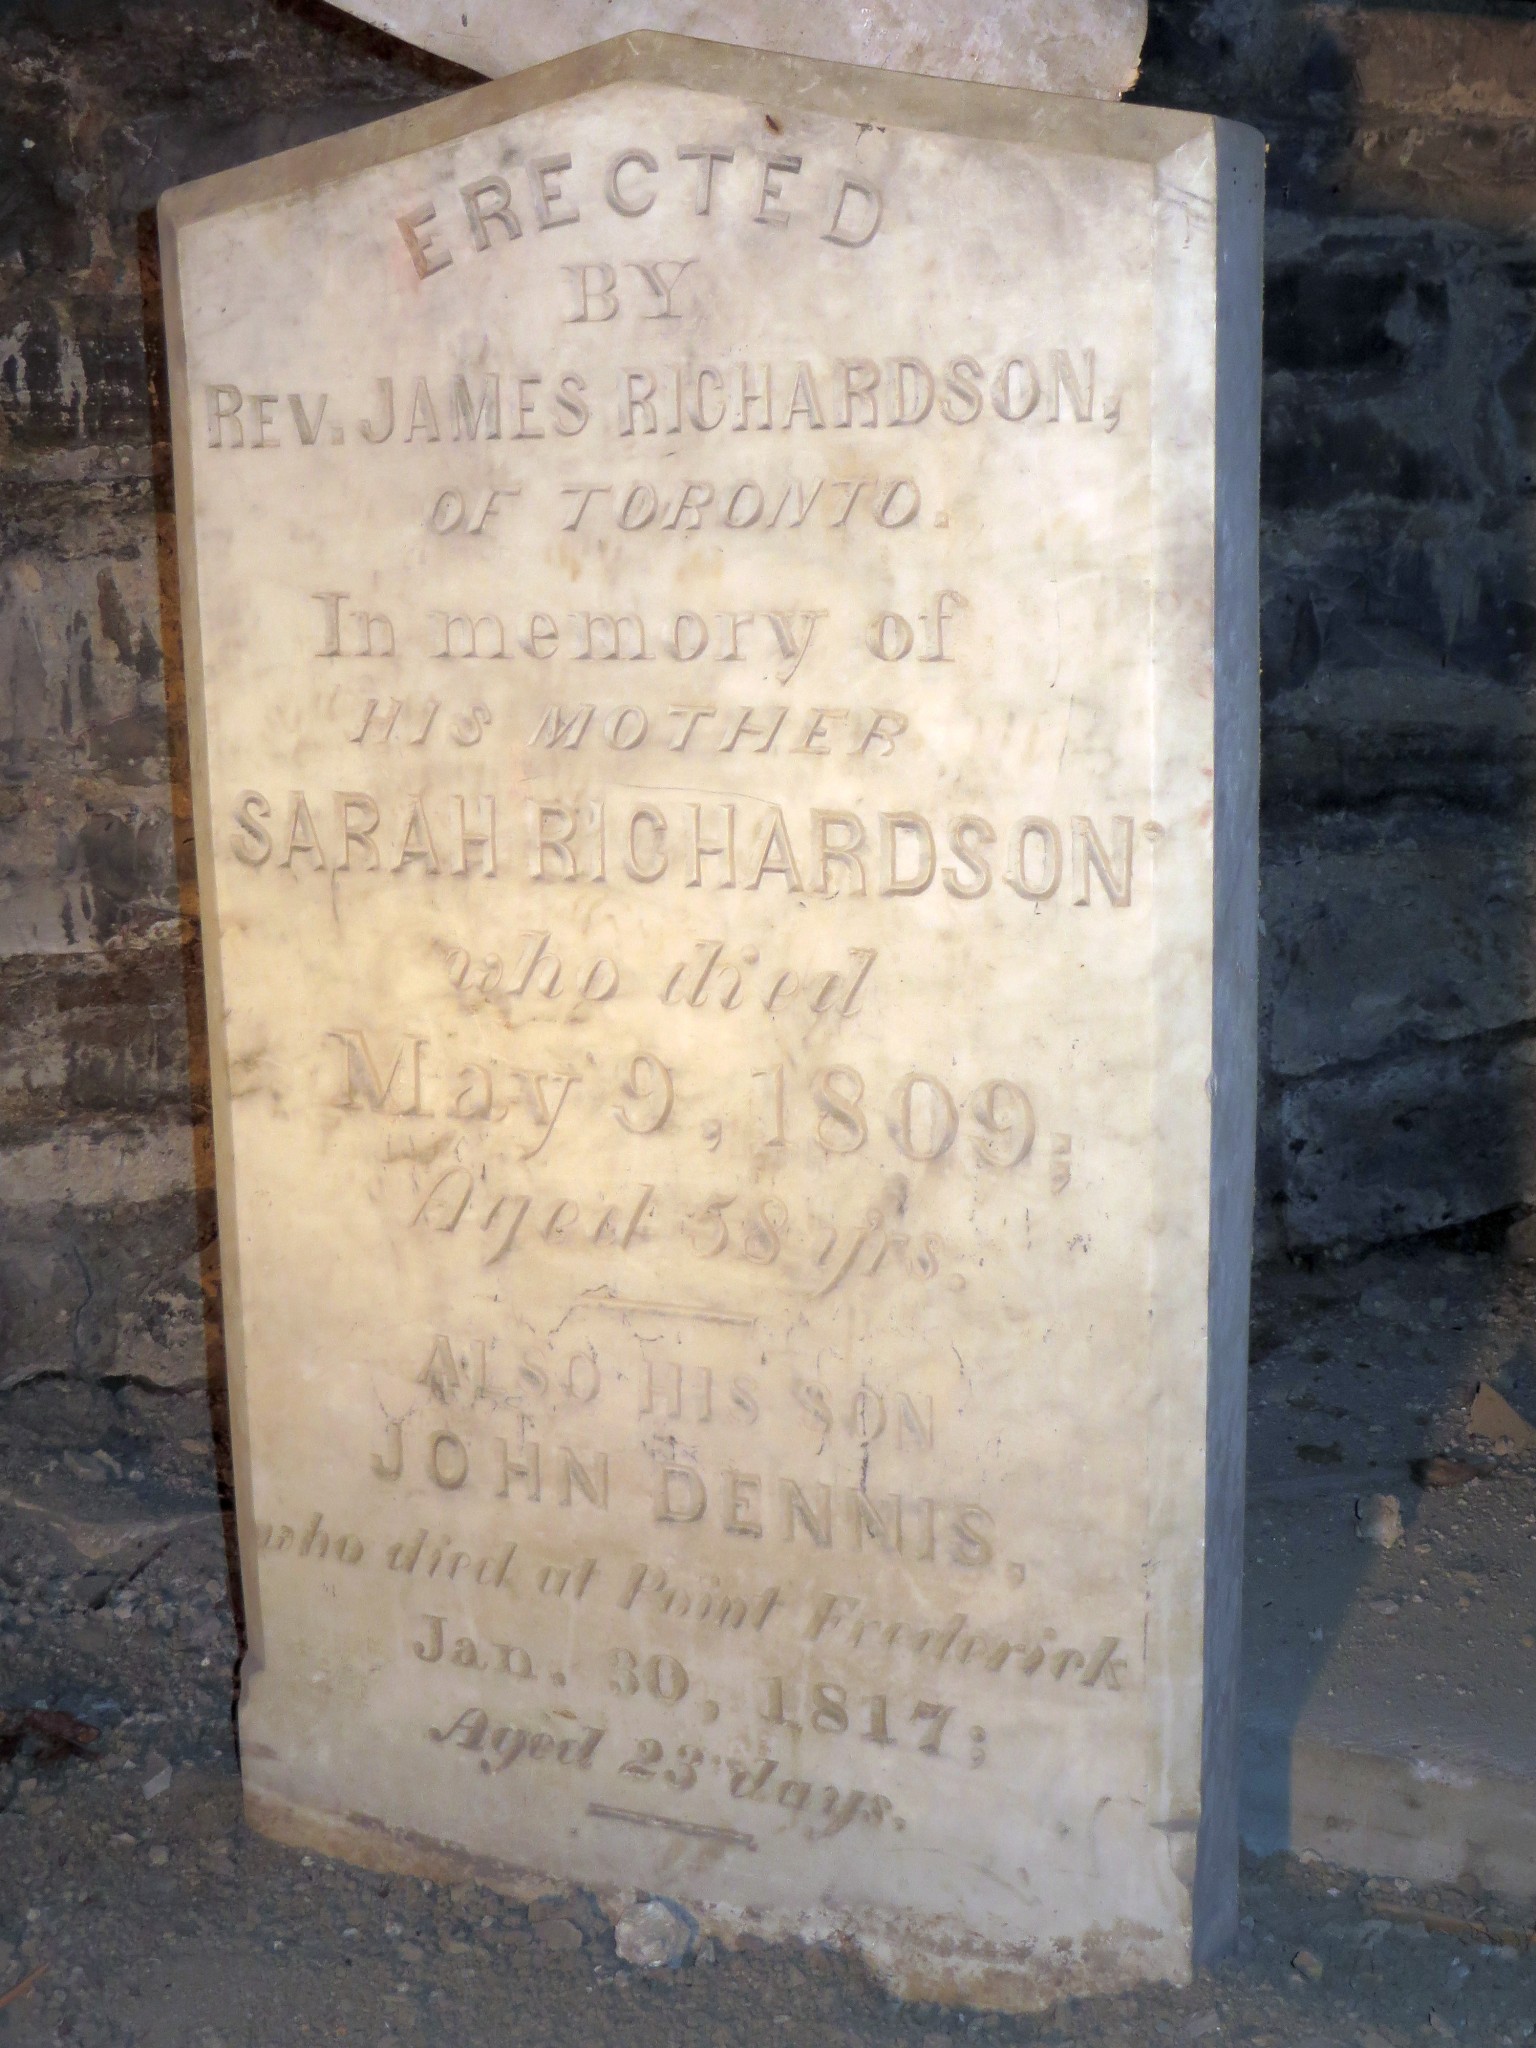 ERECTED
BY
REV. JAMES RICHARDSON,
OF TORONTO.
In memory of
HIS MOTHER
SARAH RICHARDSON
who died
May 9, 1809;
Aged 58 yrs.
ALSO HIS SON
JOHN DENNIS,
who died at Point Frederick
Jan. 30, 1817;
Aged 23 days.